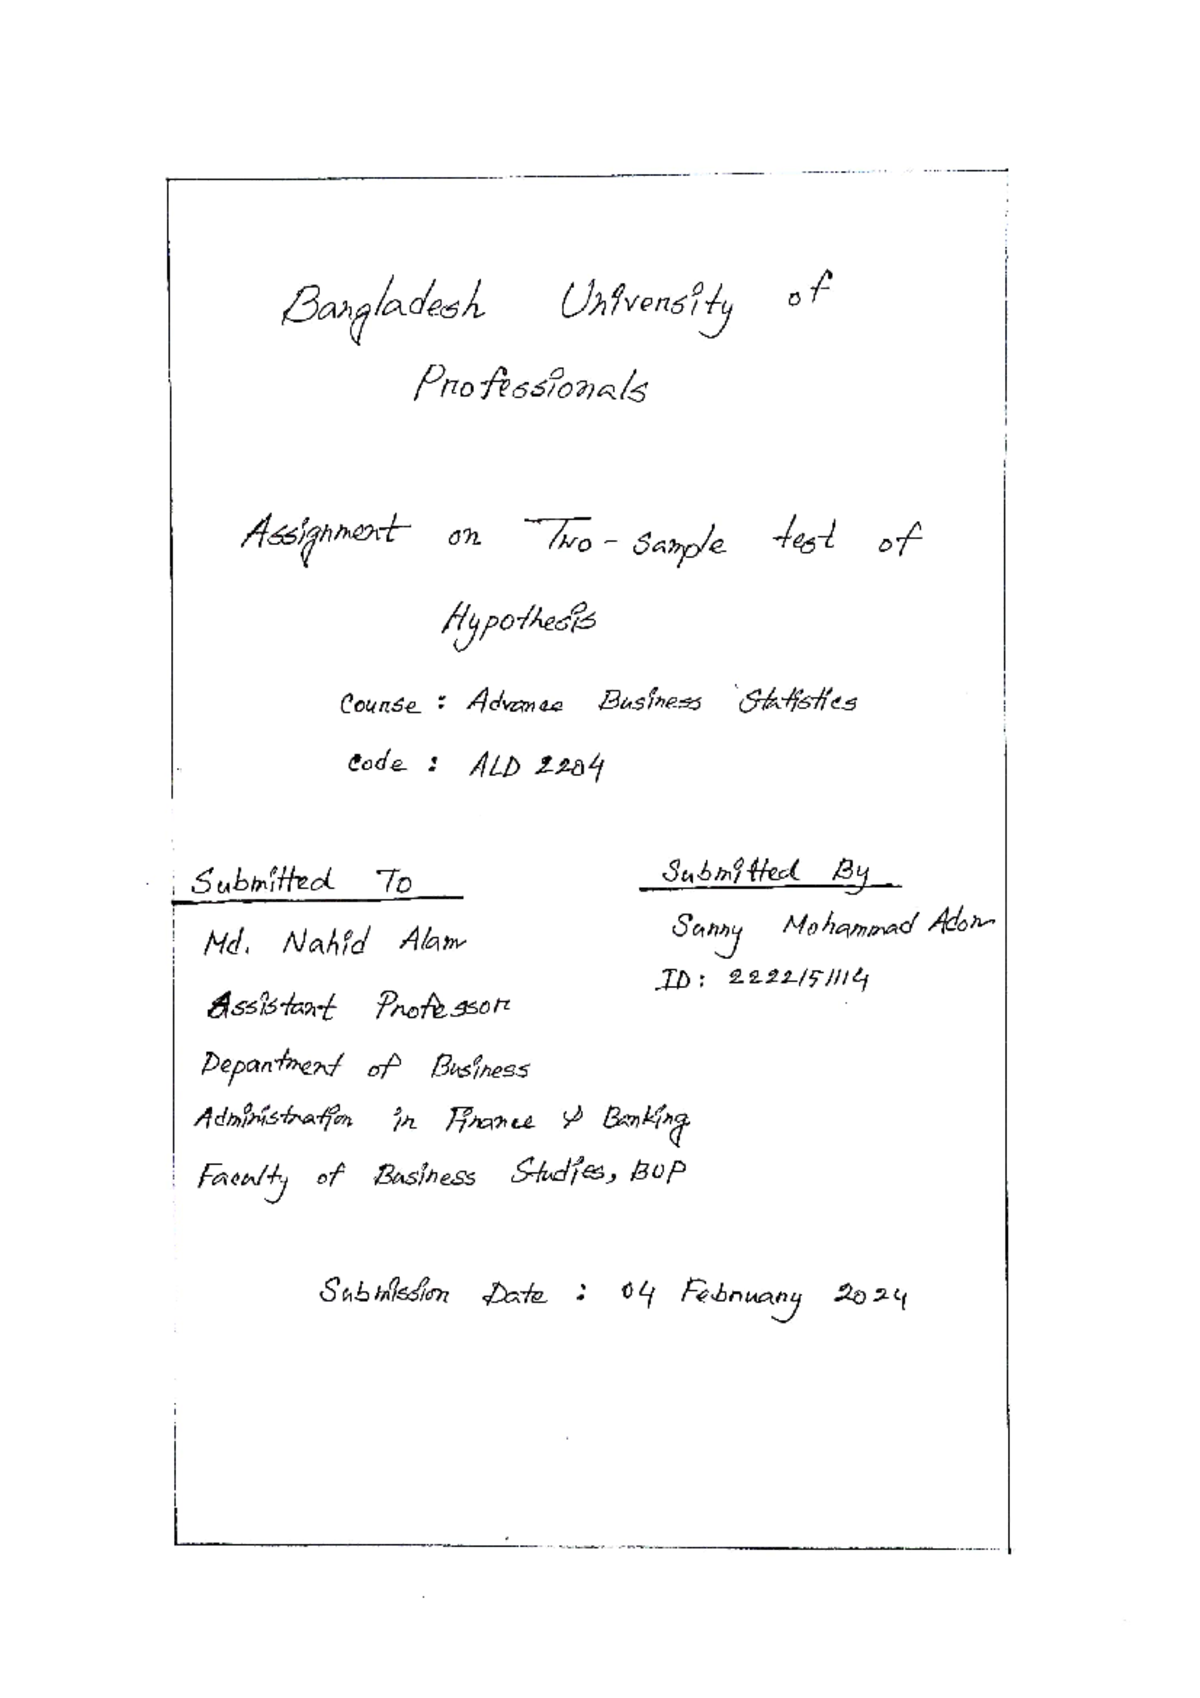 Bangladesh University of
Professionals
Assignment on Two-sample test of
Hypothesis
Course : Advance Business Statistics
Code : ALD 2204
Submitted To
Md. Nahid Alam
Assistant Professor
Department of Business
Administration in Finance & Banking
Faculty of Business Studies, BUP
Submitted By
Sunny Mohammad Adon
ID: 2222151114
Submission Date : 04 February 2024